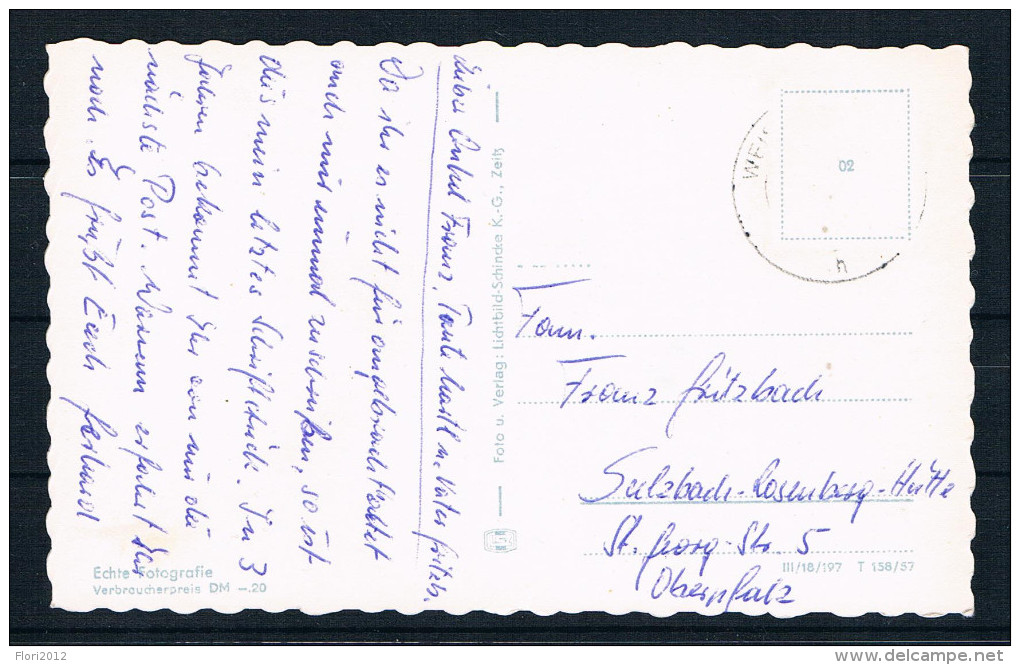 Liebe Onkel Franz, Tante Martl u. Vater Gritzb.
Da ihr es nicht für angebracht haltet
auch mir einmal zu schreiben, so ist
dies mein letztes Schriftstück. In 3
Jahren bekommt Ihr von mir die
nächste Post. Warum erfahrt Ihr
noch. Es grüßt Euch
Echte Fotografie
Verbraucherpreis DM –.20
Foto u. Verlag: Lichtbild-Schincke K.-G., Zeitz
02
WEI
n
Fam.
Franz Gritzbach
Sulzbach-Rosenberg-Hütte
St. Georg-Str. 5
Oberpfalz
III/18/197 T 158/57
Flori2012